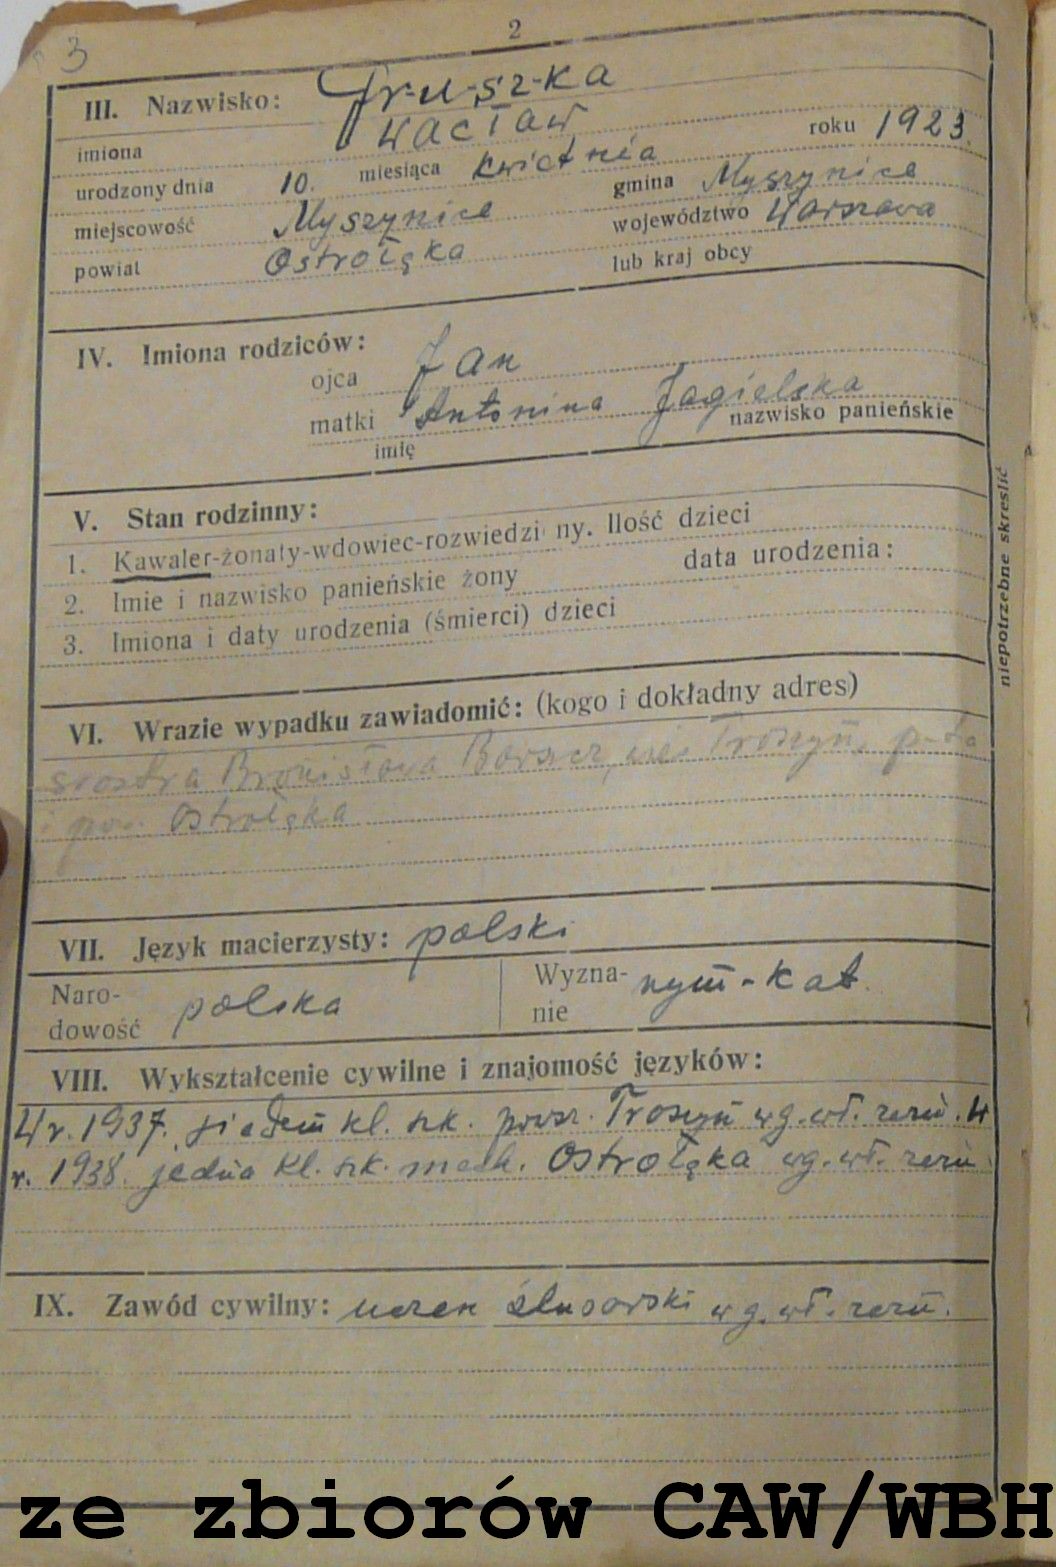 3
2
III. Nazwisko: Pr-u-sz-ka
imiona Wacław
urodzony dnia 10. miesiąca kwietnia roku 1923.
miejscowość Myszynice gmina Myszynice
powiat Ostrołęka województwo Warszawa
lub kraj obcy
IV. Imiona rodziców:
ojca Jan
matki Antonina Jagielska
imię nazwisko panieńskie
V. Stan rodzinny:
1. Kawaler-żonaty-wdowiec-rozwiedziony. Ilość dzieci
2. Imie i nazwisko panieńskie żony data urodzenia:
3. Imiona i daty urodzenia (śmierci) dzieci
niepotrzebne skreslić
VI. Wrazie wypadku zawiadomić: (kogo i dokładny adres)
siostra Bronisława wieś Troszyn, p-ta
i pow. Ostrołęka
VII. Język macierzysty: polski
Narodowość polska Wyznanie rzym-kat.
VIII. Wykształcenie cywilne i znajomość języków:
W r. 1937. siedem kl. szk. powsz. Troszyn wg. wł. zezn. W
r. 1938. jedna kl. szk. mech. Ostrołęka wg. wł. zezn.
IX. Zawód cywilny: uczeń ślusarski wg. wł. zezn.
ze zbiorów CAW/WBH